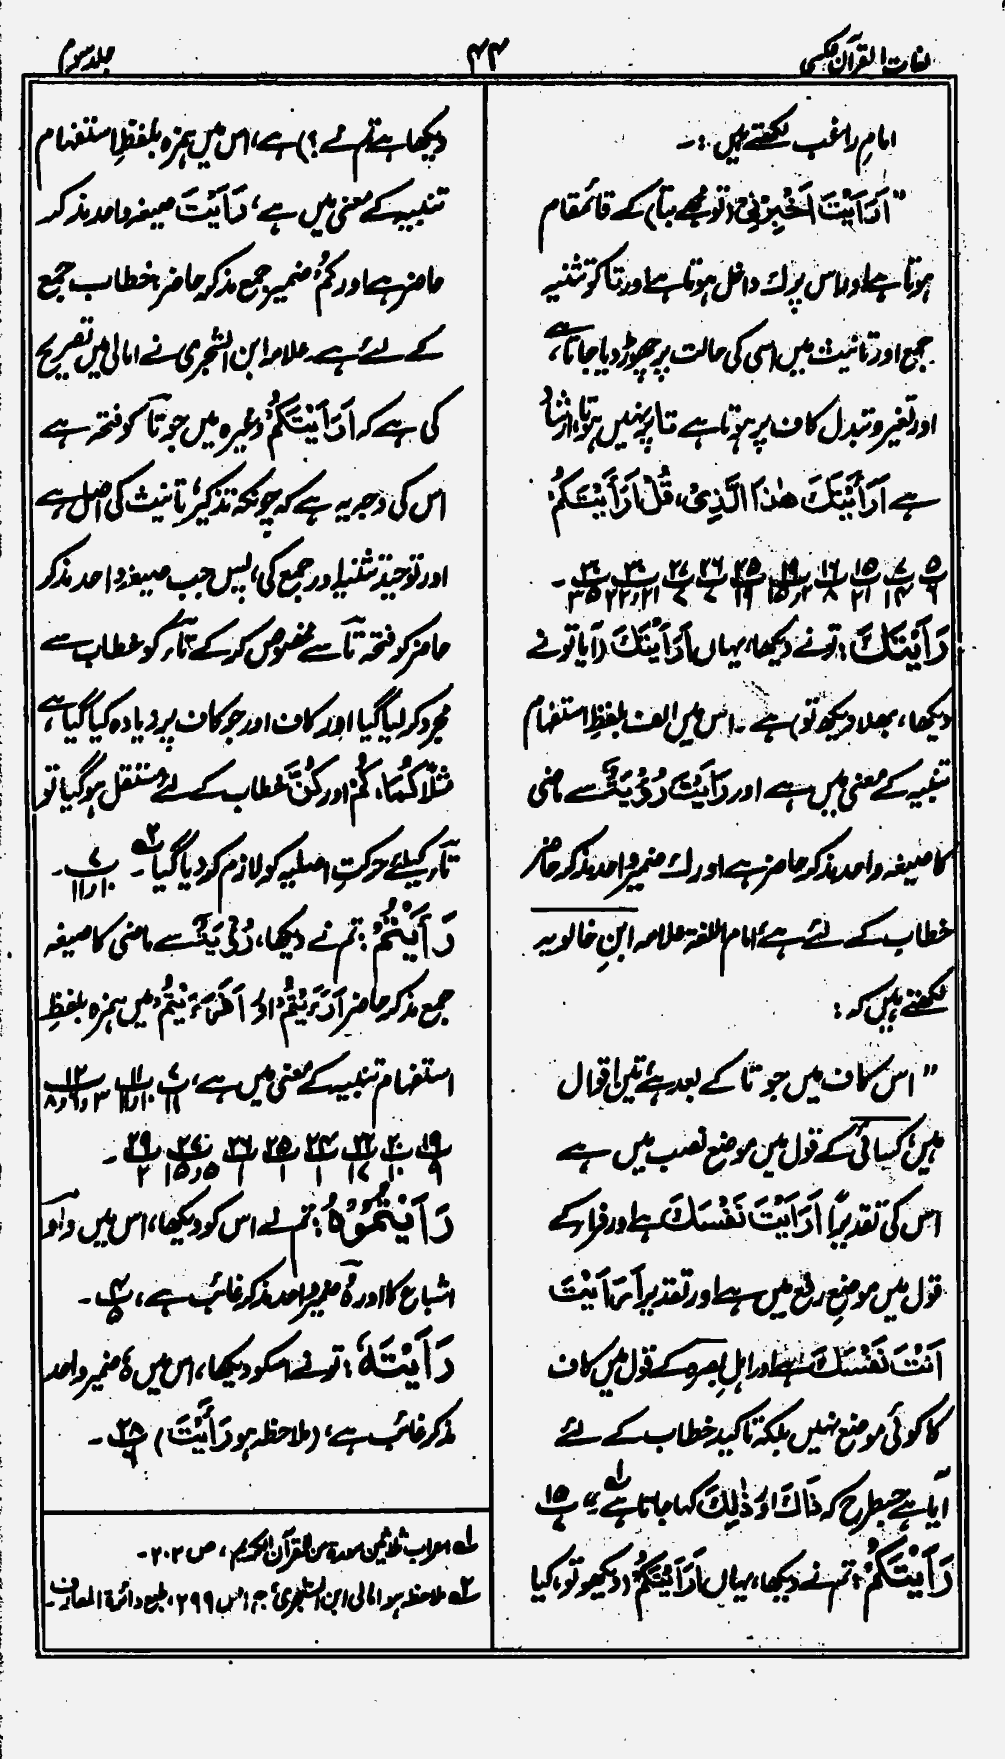 لغات القرآن عکسی
۴۴
جلد سوم
امام راغب لکھتے ہیں :۔
"اَرَاَیْتَ اَخْبِرْنِیْ (تو مجھے بتا) کے قائمقام
ہوتا ہے اور اس پر ك داخل ہوتا ہے اور تا کو تثنیہ
جمع اور تانیث میں اسی کی حالت پر چھوڑ دیا جاتا ہے،
اور تغیر و تبدل کاف پر ہوتا ہے تا پر نہیں ہوتا، ارشاد
ہے اَرَاَیْتَكَ هٰذَا الَّذِیْ، قُلْ اَرَاَیْتَكُمْ
رَاَیْتَكَ : تو نے دیکھا، یہاں اَرَاَیْتَكَ (آیا تو نے
دیکھا، بھلا دیکھ تو) ہے۔ اس میں الف بلفظِ استفہام
تنبیہ کے معنی میں ہے اور رَاَیْتَ رُؤْیَۃٌ سے ماضی
کا صیغہ واحد مذکر حاضر ہے اور ك ضمیر واحد مذکر حاضر
خطاب کے لئے ہے، امام اللغۃ علامہ ابنِ خالویہ
لکھتے ہیں کہ :
"اس کاف میں جو تا کے بعد ہے، تین اقوال
ہیں، کسائی کے قول میں موضع نصب میں ہے
اس کی تقدیر اَرَاَیْتَ نَفْسَكَ ہے اور فراء کے
قول میں موضعِ رفع میں ہے اور تقدیر اَرَاَیْتَ
اَنْتَ نَفْسَكَ ہے اور اہلِ بصرہ کے قول میں کاف
کا کوئی موضع نہیں بلکہ تاکید خطاب کے لئے
آیا ہے جسطرح کہ ذَاكَ اور ذٰلِكَ کہا جاتا ہے"
رَاَیْتَكُمْ : تم نے دیکھا، یہاں اَرَاَیْتَكُمْ (دیکھو تو، کیا
دیکھا ہے تم نے ؟) ہے، اس میں ہمزہ بلفظِ استفہام
تنبیہ کے معنی میں ہے، رَاَیْتَ صیغہ واحد مذکر
حاضر ہے اور كُمْ ضمیر جمع مذکر حاضر، خطاب جمع
کے لئے ہے۔ علامہ ابن الشجری نے امالی میں تصریح
کی ہے کہ اَرَاَیْتَكُمْ وغیرہ میں جو تا کو فتحہ ہے
اس کی وجہ یہ ہے کہ چونکہ تذکیر، تانیث کی اصل ہے
اور توحید تثنیہ اور جمع کی، پس جب صیغہ واحد مذکر
حاضر کو فتحہ تا سے مخصوص کر کے تاء کو خطاب سے
مجرد کر لیا گیا اور کاف اور جو کاف پر زیادہ کیا گیا ہے،
مثلًا كُمَا، كُمْ اور كُنَّ خطاب کے لئے مستقل ہو گیا تو
تاء کیلئے حرکتِ اصلیہ کو لازم کر دیا گیا
رَأَیْتُمْ : تم نے دیکھا، رُؤْیَۃٌ سے ماضی کا صیغہ
جمع مذکر حاضر اَرَءَیْتُمْ، اور اَفَرَءَیْتُمْ، میں ہمزہ بلفظِ
استفہام تنبیہ کے معنی میں ہے،
رَاَیْتُمُوْهُ : تم نے اس کو دیکھا، اس میں واو
اشباع کا اور ہٗ ضمیر واحد مذکر غائب ہے،
رَاَیْتَهٗ : تو نے اسکو دیکھا، اس میں ہٗ ضمیر واحد
مذکر غائب ہے، (ملاحظہ ہو رَأَیْتَ)
۱؎ اعراب ثلاثین سورۃ من القرآن الکریم، ص ۲۰۲۔
۲؎ ملاحظہ ہو امالی ابن الشجری، ج ۱ ص ۲۹۹، طبع دائرۃ المعارف۔